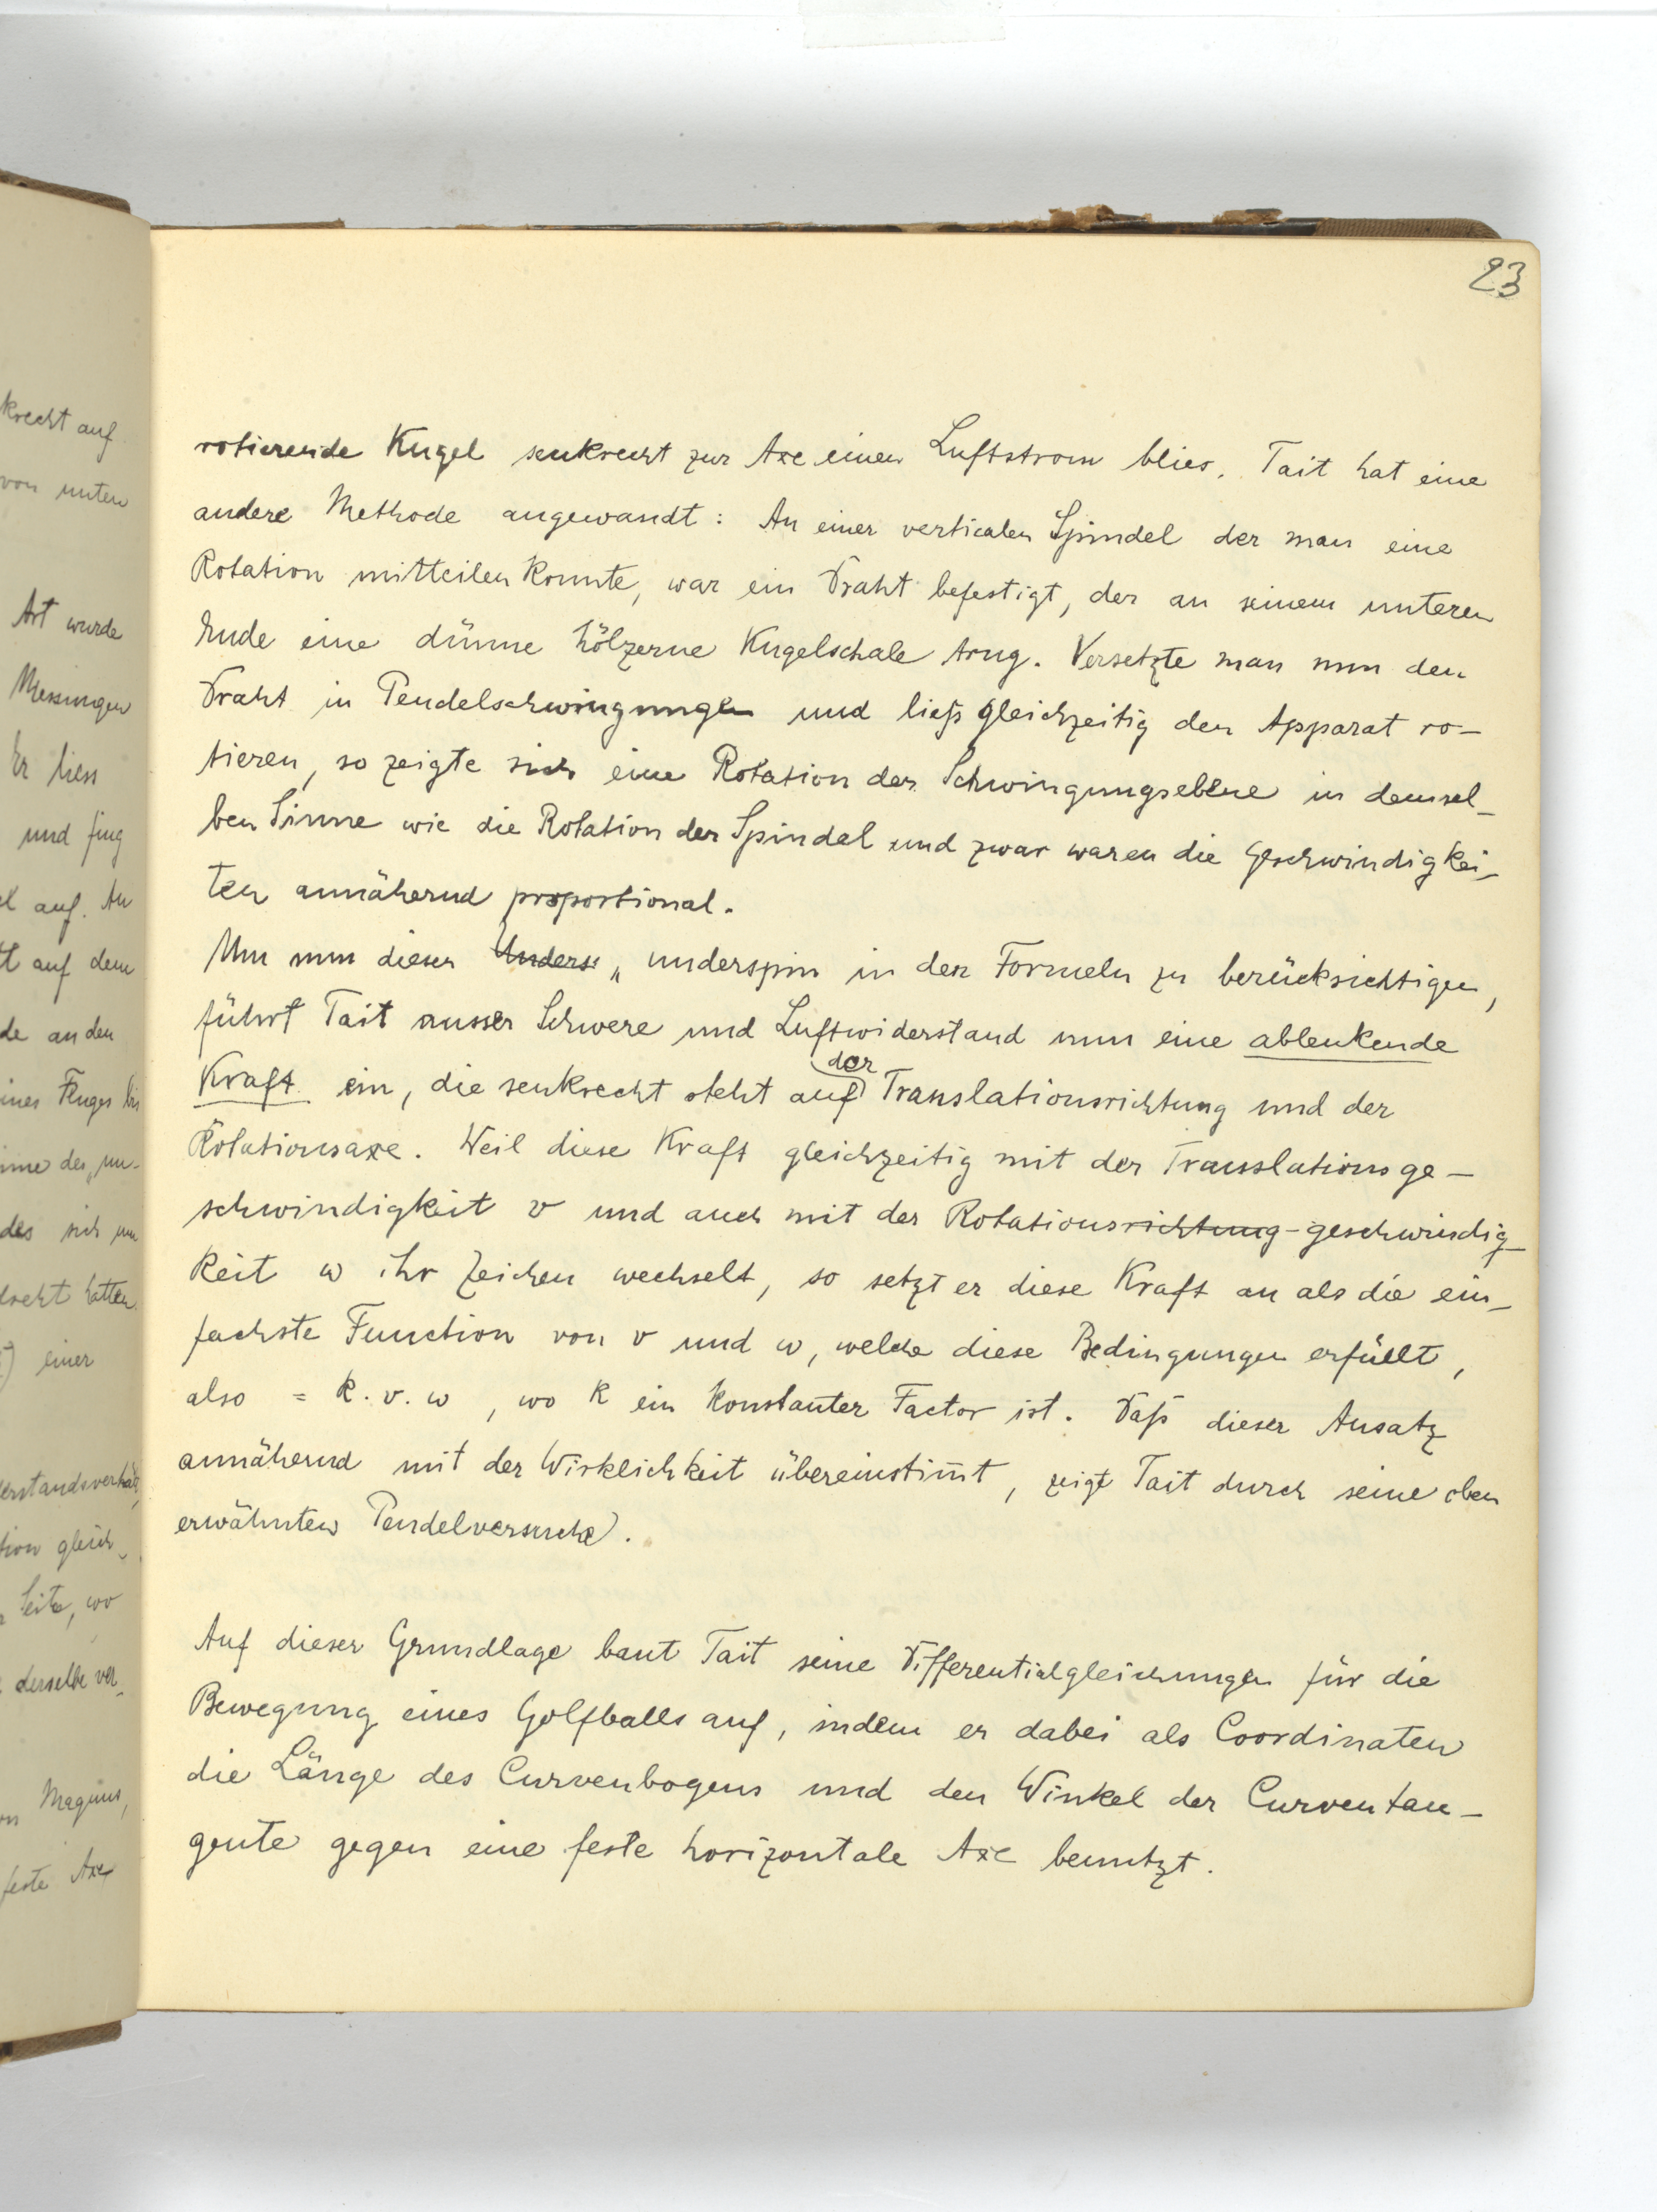 krecht auf
von unten
Art wurde
Messungen
Er liess
und fing
auf. An
auf dem
de an den
ines Fluges bis
des „un-
des sich um
hatten
einer
erstandsverhält
tion gleich-
Seite, wo
derselbe ver-
Magnus,
feste Axe
23
rotierende Kugel senkrecht zur Axe einen Luftstrom blies. Tait hat eine
andere Methode angewandt: An einer verticalen Spindel der man eine
Rotation mitteilen konnte, war ein Draht befestigt, der an seinem unteren
Ende eine dünne hölzerne Kugelschale trug. Versetzte man nun den
Draht in Pendelschwingungen und ließ gleichzeitig den Apparat ro-
tieren, so zeigte sich eine Rotation der Schwingungsebene in demsel-
ben Sinne wie die Rotation der Spindel und zwar waren die Geschwindigkei-
ten annähernd proportional.
Um nun diesen Unders „underspin in den Formeln zu berücksichtigen,
führt Tait ausser Schwere und Luftwiderstand nun eine ablenkende
Kraft ein, die senkrecht steht auf der Translationsrichtung und der
Rotationsaxe. Weil diese Kraft gleichzeitig mit der Translationsge-
schwindigkeit v und auch mit der Rotationsrichtung-geschwindig-
keit ω ihr Zeichen wechselt, so setzt er diese Kraft an als die ein-
fachste Function von v und ω, welche diese Bedingungen erfüllt,
also = k.v.ω, wo k ein konstanter Factor ist. Daß dieser Ansatz
annähernd mit der Wirklichkeit übereinstim̅t, zeigt Tait durch seine oben
erwähnten Pendelversuche.
Auf dieser Grundlage baut Tait seine Differentialgleichungen für die
Bewegung eines Golfballs auf, indem er dabei als Coordinaten
die Länge des Curvenbogens und den Winkel der Curventan-
gente gegen eine feste horizontale Axe benutzt.